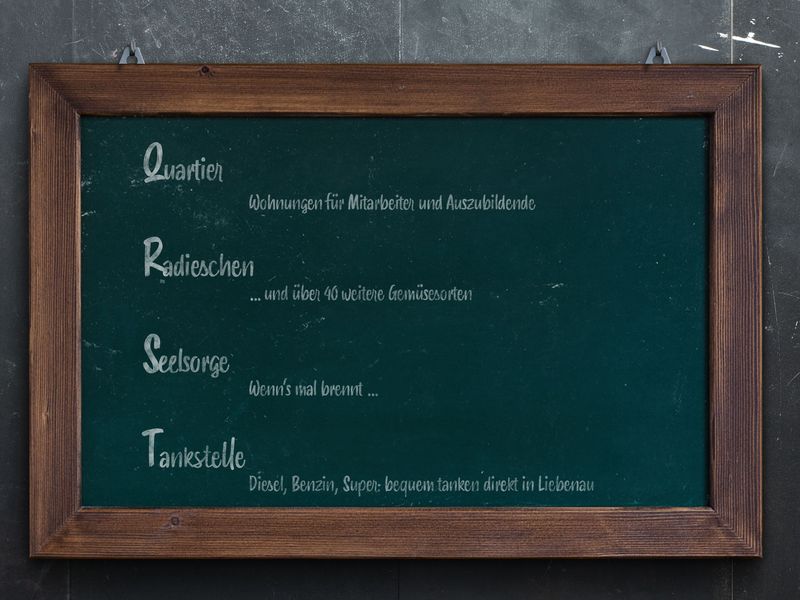 Quartier
Wohnungen für Mitarbeiter und Auszubildende
Radieschen
... und über 40 weitere Gemüsesorten
Seelsorge
Wenn's mal brennt ...
Tankstelle
Diesel, Benzin, Super: bequem tanken direkt in Liebenau